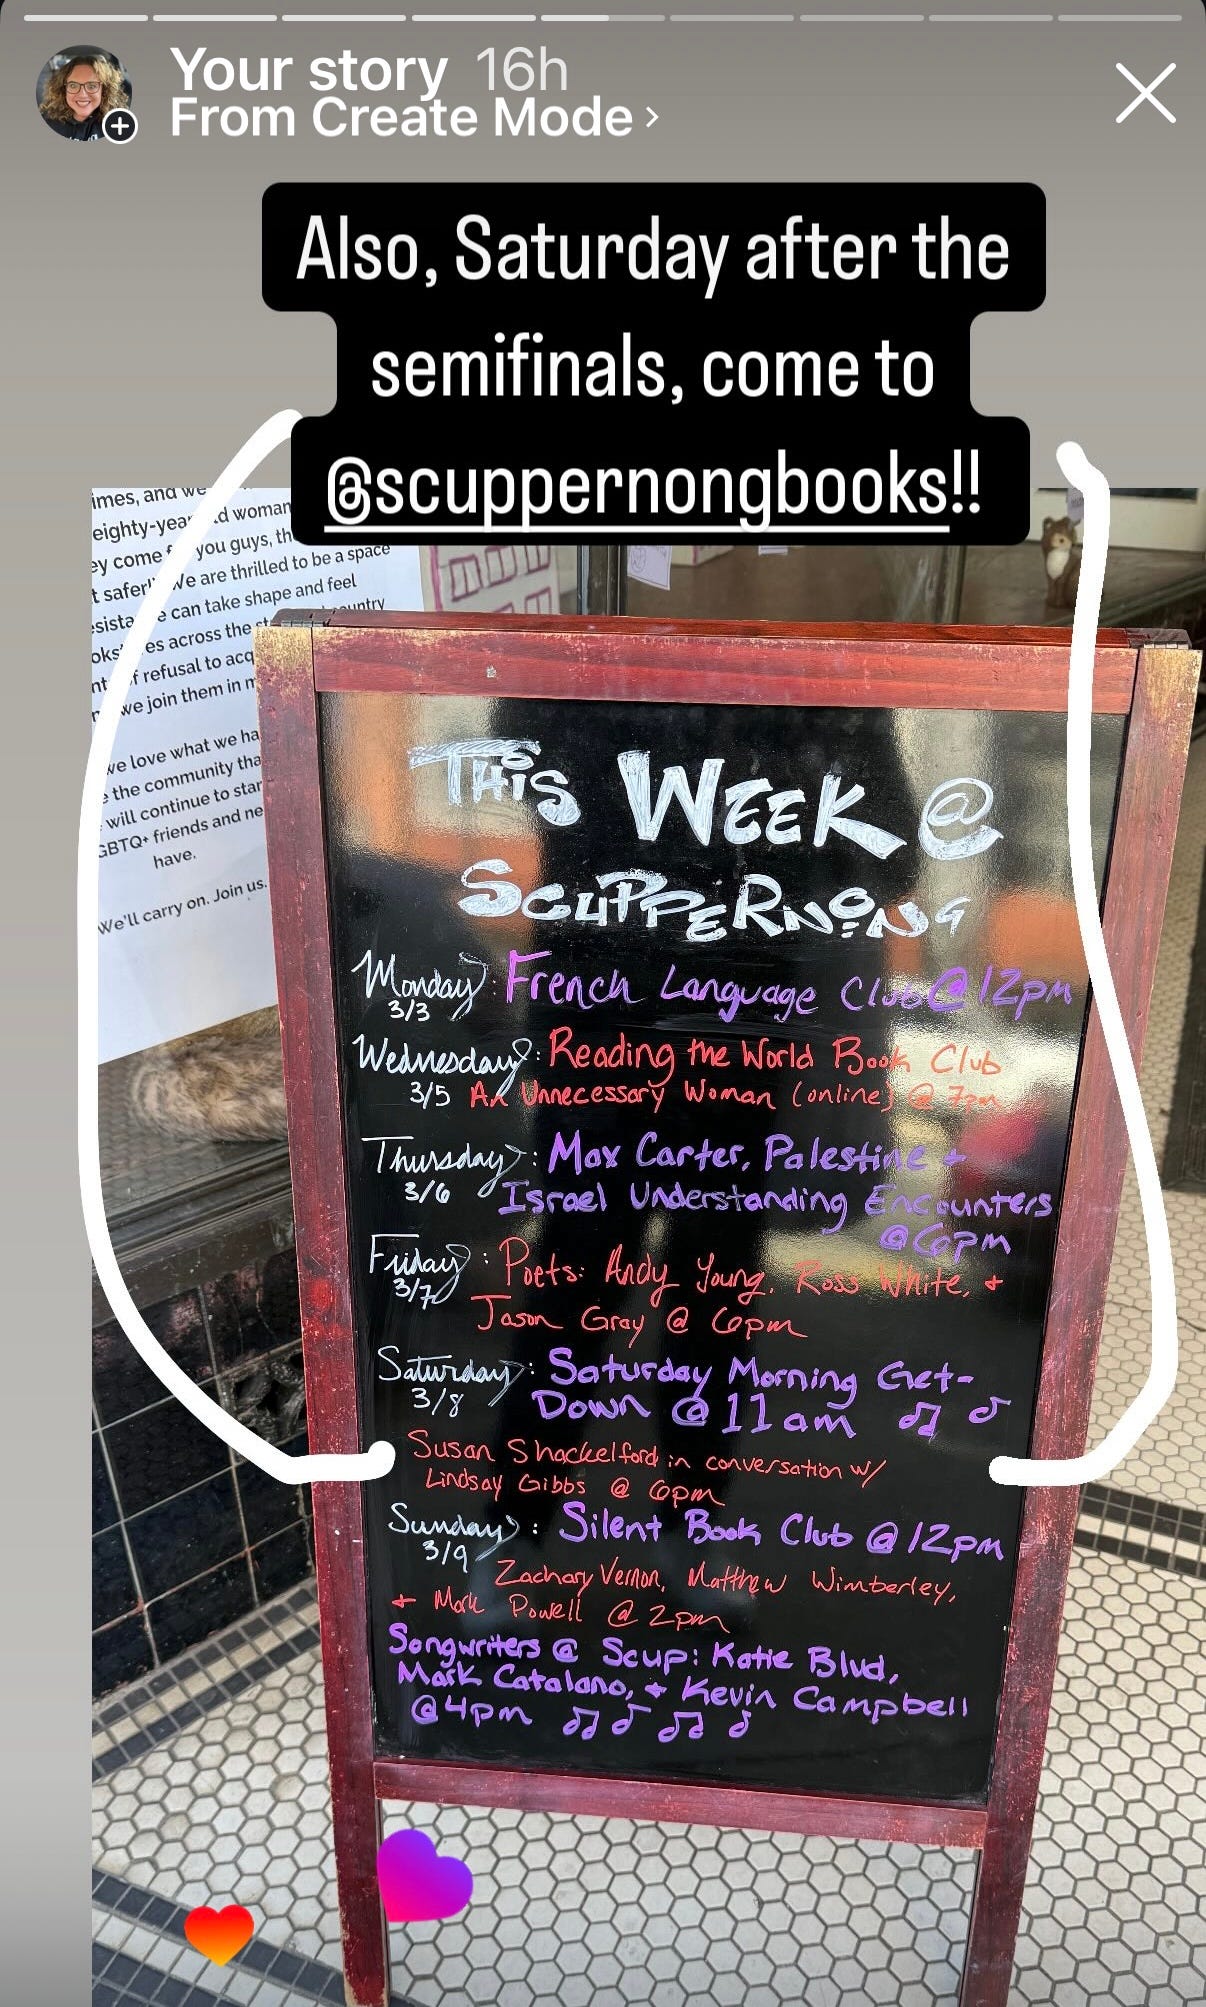 Your story 16h
From Create Mode >
Also, Saturday after the
semifinals, come to
@scuppernongbooks!!
imes, and we
eighty-year d woman
ey come you guys, th
t safer We are thrilled to be a space
e can take shape and feel
es across the country
refusal to acq
we join them in m
we love what we ha
the community tha
will continue to star
GBTQ+ friends and ne
have.
We'll carry on. Join us.
THIS WEEK @
SCUPPERNONG
Monday: French Language Club @ 12pm
3/3
Wednesday: Reading the World Book Club
3/5 An Unnecessary Woman (online) @ 7pm
Thursday: Max Carter, Palestine +
3/6 Israel Understanding Encounters
@ 6pm
Friday: Poets: Andy Young, Ross White, +
3/7 Jason Gray @ 6pm
Saturday: Saturday Morning Get-
3/8 Down @ 11am
Susan Shackelford in conversation w/
Lindsay Gibbs @ 6pm
Sunday: Silent Book Club @ 12pm
3/9 Zachary Vernon, Matthew Wimberley,
+ Mark Powell @ 2pm
Songwriters @ Scup: Katie Blvd,
Mark Catalano, + Kevin Campbell
@ 4pm